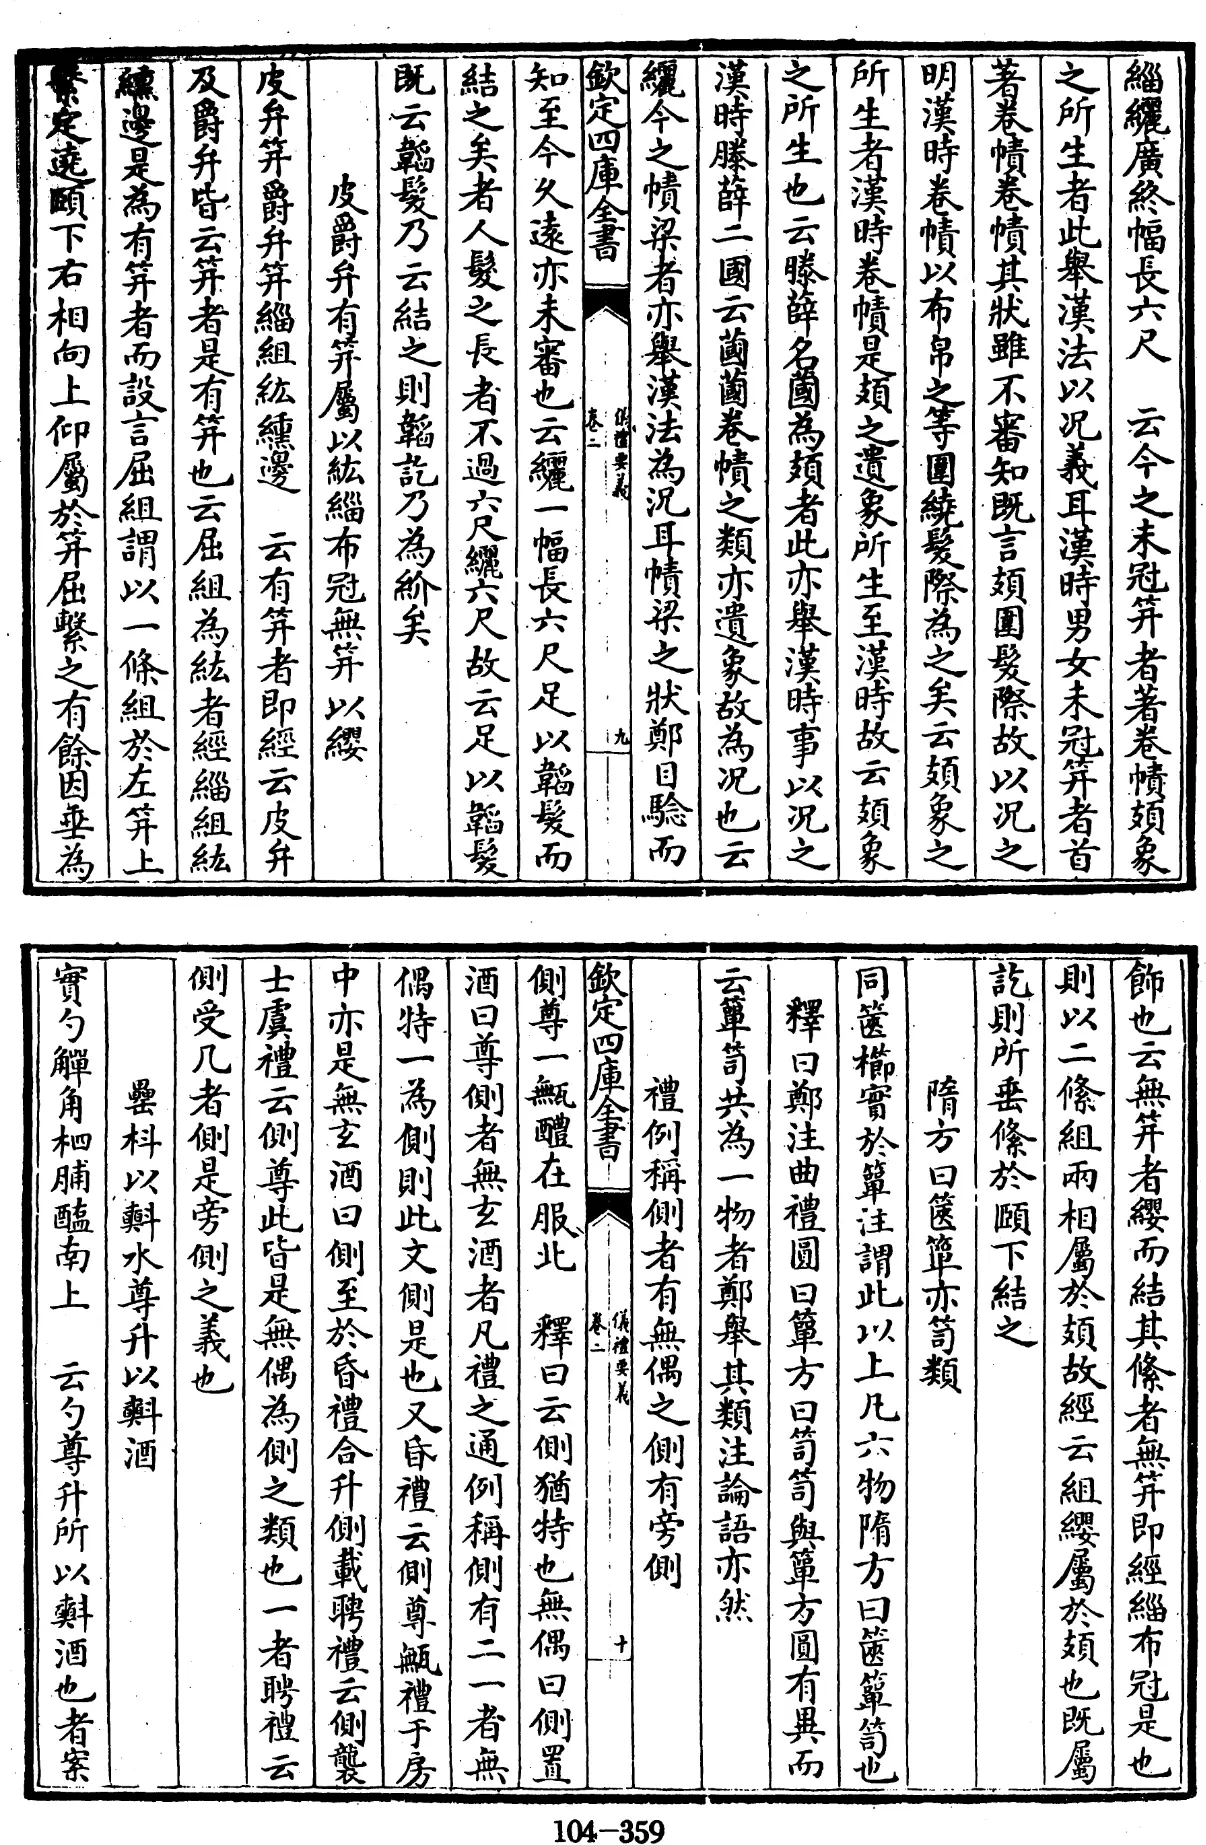 緇纚廣終幅長六尺　云今之未冠笄者著卷幘頍象
之所生者此舉漢法以况義耳漢時男女未冠笄者首
著卷幘卷幘其狀雖不審知既言頍圍髮際故以况之
明漢時卷幘以布帛之等圍繞髮際為之矣云頍象之
所生者漢時卷幘是頍之遺象所生至漢時故云頍象
之所生也云滕薛名蔮為頍者此亦舉漢時事以况之
漢時滕薛二國云蔮蔮卷幘之類亦遺象故為况也云
纚今之幘梁者亦舉漢法為况耳幘梁之狀鄭目驗而
欽定四庫全書　儀禮要義　卷二　九
知至今久遠亦未審也云纚一幅長六尺足以韜髮而
結之矣者人髮之長者不過六尺纚六尺故云足以韜髮
既云韜髮乃云結之則韜訖乃為紒矣
皮爵弁有笄屬以紘緇布冠無笄以纓
皮弁笄爵弁笄緇組紘纁邊　云有笄者即經云皮弁
及爵弁皆云笄者是有笄也云屈組為紘者經緇組紘
纁邊是為有笄者而設言屈組謂以一條組於左笄上
繫定遶頤下右相向上仰屬於笄屈繫之有餘因垂為
飾也云無笄者纓而結其絛者無笄即經緇布冠是也
則以二絛組兩相屬於頍故經云組纓屬於頍也既屬
訖則所垂絛於頤下結之
隋方曰篋簞亦笥類
同篋櫛實於簞注謂此以上凡六物隋方曰篋簞笥也
釋曰鄭注曲禮圓曰簞方曰笥笥與簞方圓有異而
云簞笥共為一物者鄭舉其類注論語亦然
禮例稱側者有無偶之側有旁側
欽定四庫全書　儀禮要義　卷二　十
側尊一甒醴在服北　釋曰云側猶特也無偶曰側置
酒曰尊側者無玄酒者凡禮之通例稱側有二一者無
偶特一為側則此文側是也又昏禮云側尊甒禮于房
中亦是無玄酒曰側至於昏禮合升側載聘禮云側襲
士虞禮云側尊此皆是無偶為側之類也一者聘禮云
側受几者側是旁側之義也
罍枓以㪺水尊升以㪺酒
實勺觶角柶脯醢南上　云勺尊升所以㪺酒也者案
104-359